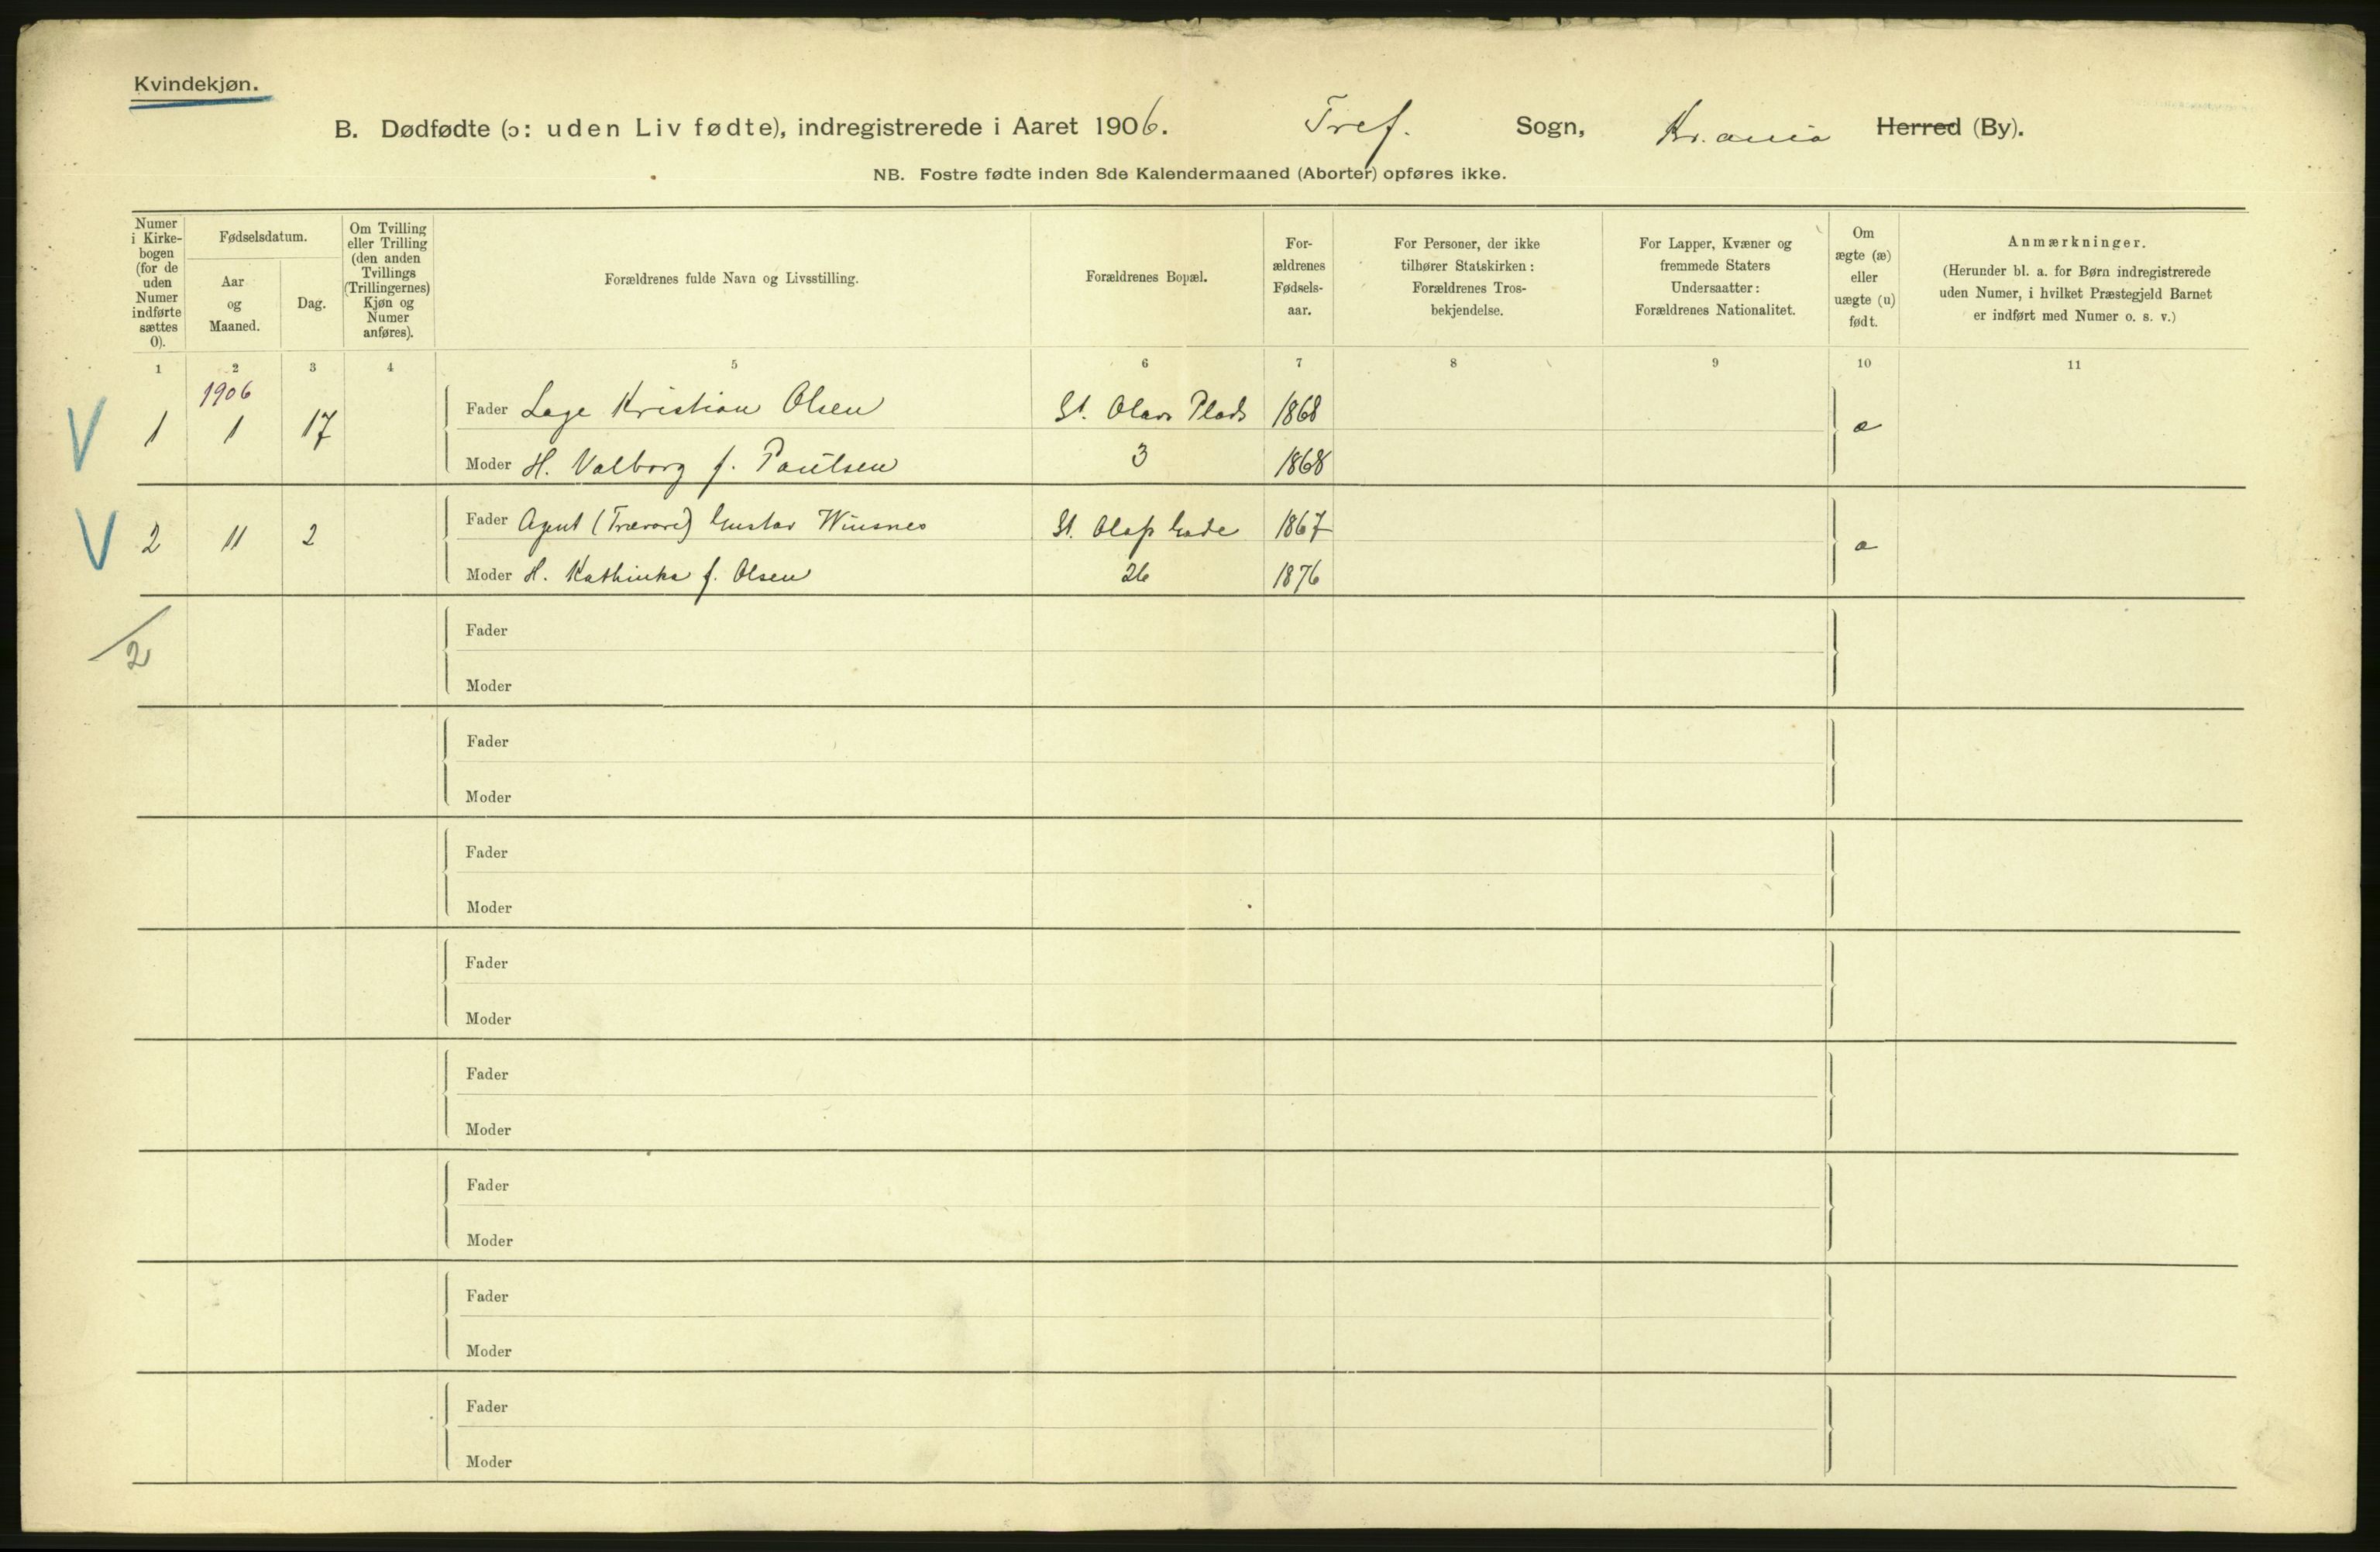 Kvindekjøn.
B. Dødfødte (ɔ: uden Liv fødte), indregistrerede i Aaret 1906. Tref. Sogn, Kr.ania Herred (By).
NB. Fostre fødte inden 8de Kalendermaaned (Aborter) opføres ikke.
Numer
i Kirke-
bogen
(for de
uden
Numer
indførte
sættes
0).
Fødselsdatum.
Aar
og
Maaned.
Dag.
Om Tvilling
eller Trilling
(den anden
Tvillings
(Trillingernes)
Kjøn og
Numer
anføres).
Forældrenes fulde Navn og Livsstilling.
Forældrenes Bopæl.
For-
ældrenes
Fødsels-
aar.
For Personer, der ikke
tilhører Statskirken:
Forældrenes Tros-
bekjendelse.
For Lapper, Kvæner og
fremmede Staters
Undersaatter:
Forældrenes Nationalitet.
Om
ægte (æ)
eller
uægte (u)
født.
Anmærkninger.
(Herunder bl. a. for Børn indregistrerede
uden Numer, i hvilket Præstegjeld Barnet
er indført med Numer o. s. v.)
1 2 3 4 5 6 7 8 9 10 11
1906
V 1 1 17 Fader Lage Kristian Olsen St. Olavs Plads 1868 æ
Moder H. Valborg f. Paulsen 3 1868
V 2 11 2 Fader Agent (Trævare) Gustav Winsnes St. Olafs Gade 1867 æ
Moder H. Kathinka f. Olsen 26 1876
2
Fader
Moder
Fader
Moder
Fader
Moder
Fader
Moder
Fader
Moder
Fader
Moder
Fader
Moder
Fader
Moder